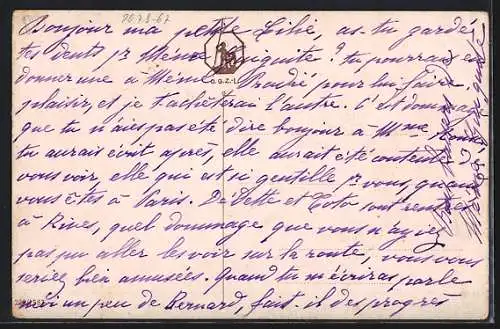 2078-67
Bonjour ma petite Lilie, as-tu gardé
tes dents pr Mémé Guiguite? tu pourrais en
donner une à Mémé Boudré pour lui faire
plaisir, et je t'achèterai l'autre. C'est dommage
que tu n'aies pas été dire bonjour à Mme
tu aurais écrit après, elle aurait été contente de
vous voir, elle qui est si gentille pr vous, quand
vous êtes à Paris. Dédette et Toto sont
à Rives, quel dommage que vous n'ayiez
pas pu aller les voir sur la route, vous vous
seriez bien amusées. Quand tu m'écriras parle
moi un peu de Bernard, fait-il des progrès